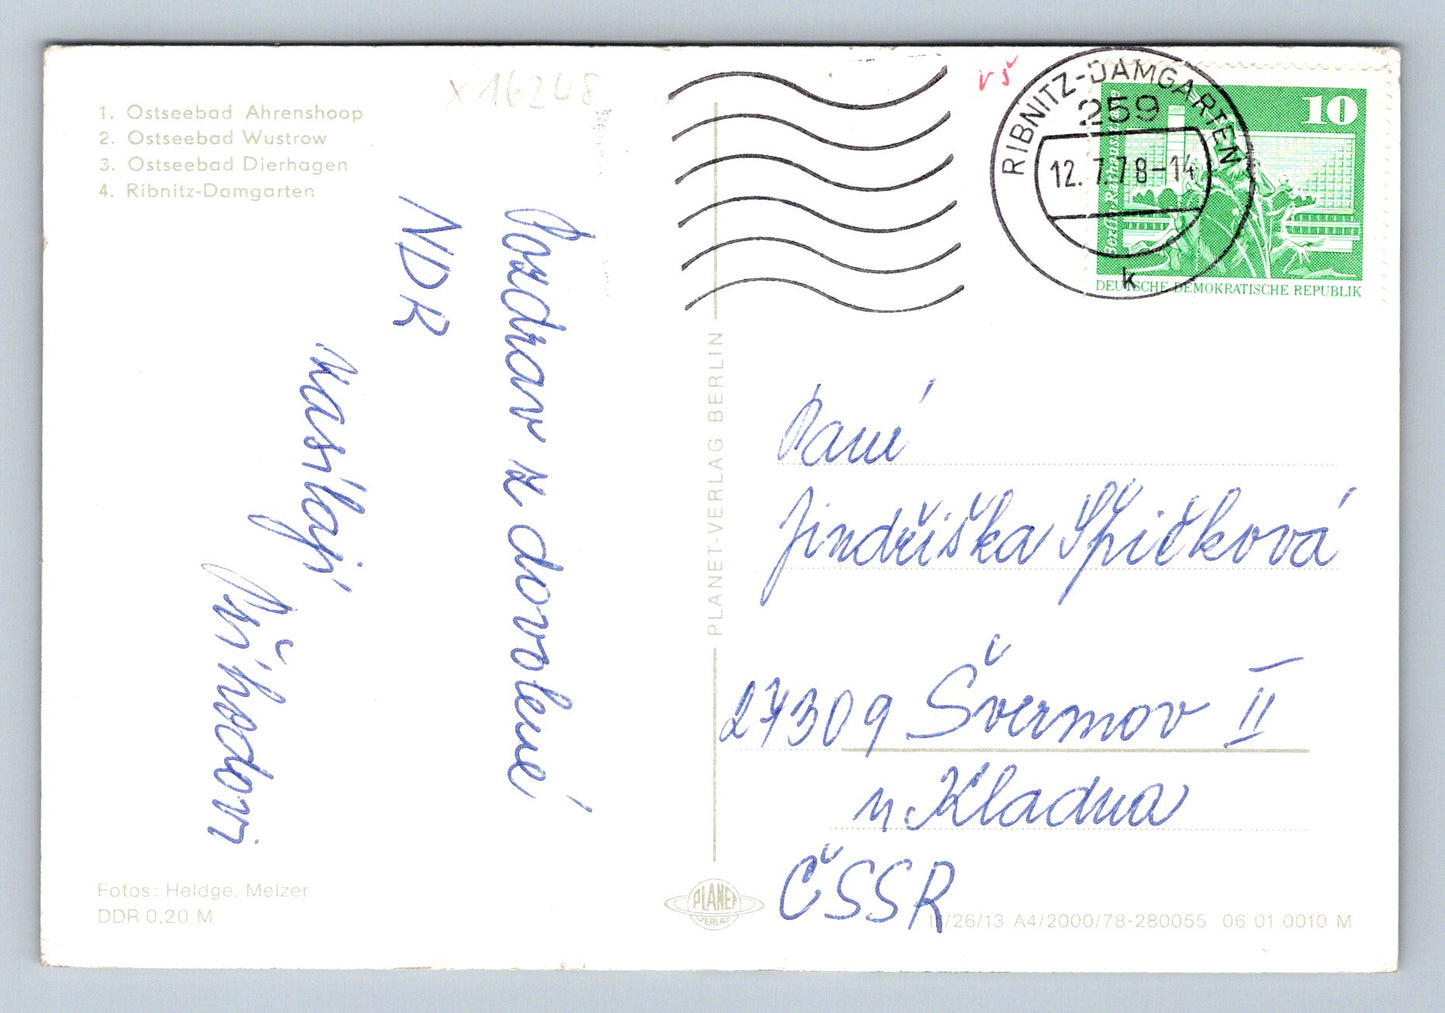 X 16248
1. Ostseebad Ahrenshoop
2. Ostseebad Wustrow
3. Ostseebad Dierhagen
4. Ribnitz-Damgarten
Pozdrav z dovolené
NDR
zasílají
Příhodovi
Fotos: Heldge, Melzer
DDR 0,20 M
PLANET-VERLAG BERLIN
PLANET
VERLAG
vš
RIBNITZ-DAMGARTEN
259
12.7.78-14
k
10
Berlin Rathausstraße
DEUTSCHE DEMOKRATISCHE REPUBLIK
Paní
Jindřiška Špičková
27309 Švermov II
u Kladna
ČSSR
/26/13 A4/2000/78-280055 06 01 0010 M